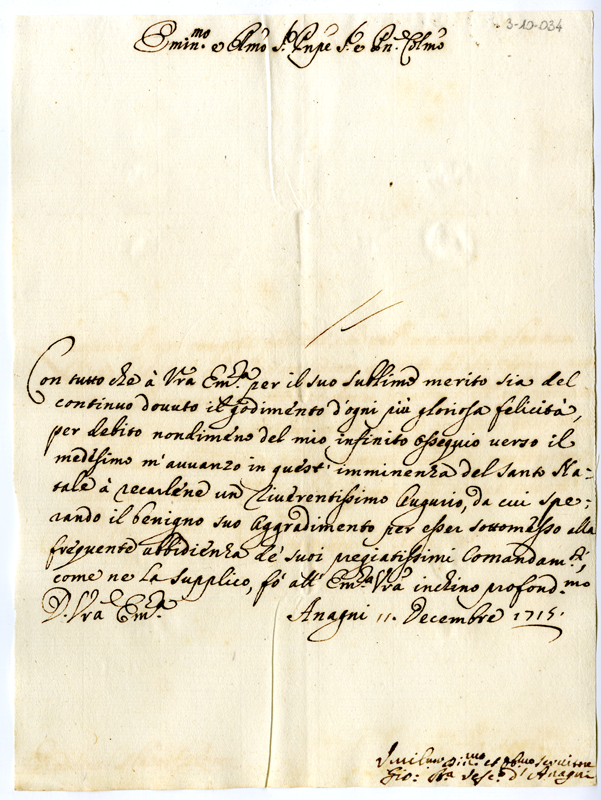 3-10-034
Emin.mo e Rmo Sr. Pnpe Sr. e Pn. Colmo
Con tutto che à Vra Em.za per il suo sublime merito sia del
continuo douuto il godimento d'ogni più gloriosa felicità,
per debito nondimeno del mio infinito ossequio verso il
medesimo m'auuanzo in quest' imminenza del Santo Na-
tale à recarlene un riuerentissimo Augurio, da cui spe-
rando il benigno suo Aggradimento per esser sottomesso alla
frequente ubbidienza de' suoi pregiatissimi Comandam.ti,
come ne La supplico, fò all' Em.za Vra inchino profond.mo
D. Vra Em.za Anagni 11. Decembre 1715.
Deuot.mo et Obl.mo seruitore
Gio: Bta Vesc.o d'Anagni